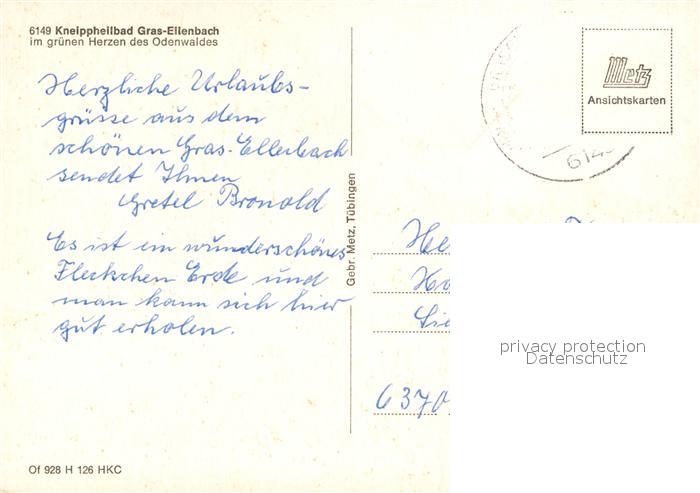 6149 Kneippheilbad Gras-Ellenbach
im grünen Herzen des Odenwaldes
Herzliche Urlaubs-
grüsse aus dem
schönen Gras-Ellenbach
sendet Ihnen
Gretel Bronold
Es ist ein wunderschönes
Fleckchen Erde und
man kann sich hier
gut erholen.
Of 928 H 126 HKC
Gebr. Metz, Tübingen
Metz
Ansichtskarten
614
He
Ho
Sie
6370
privacy protection
Datenschutz